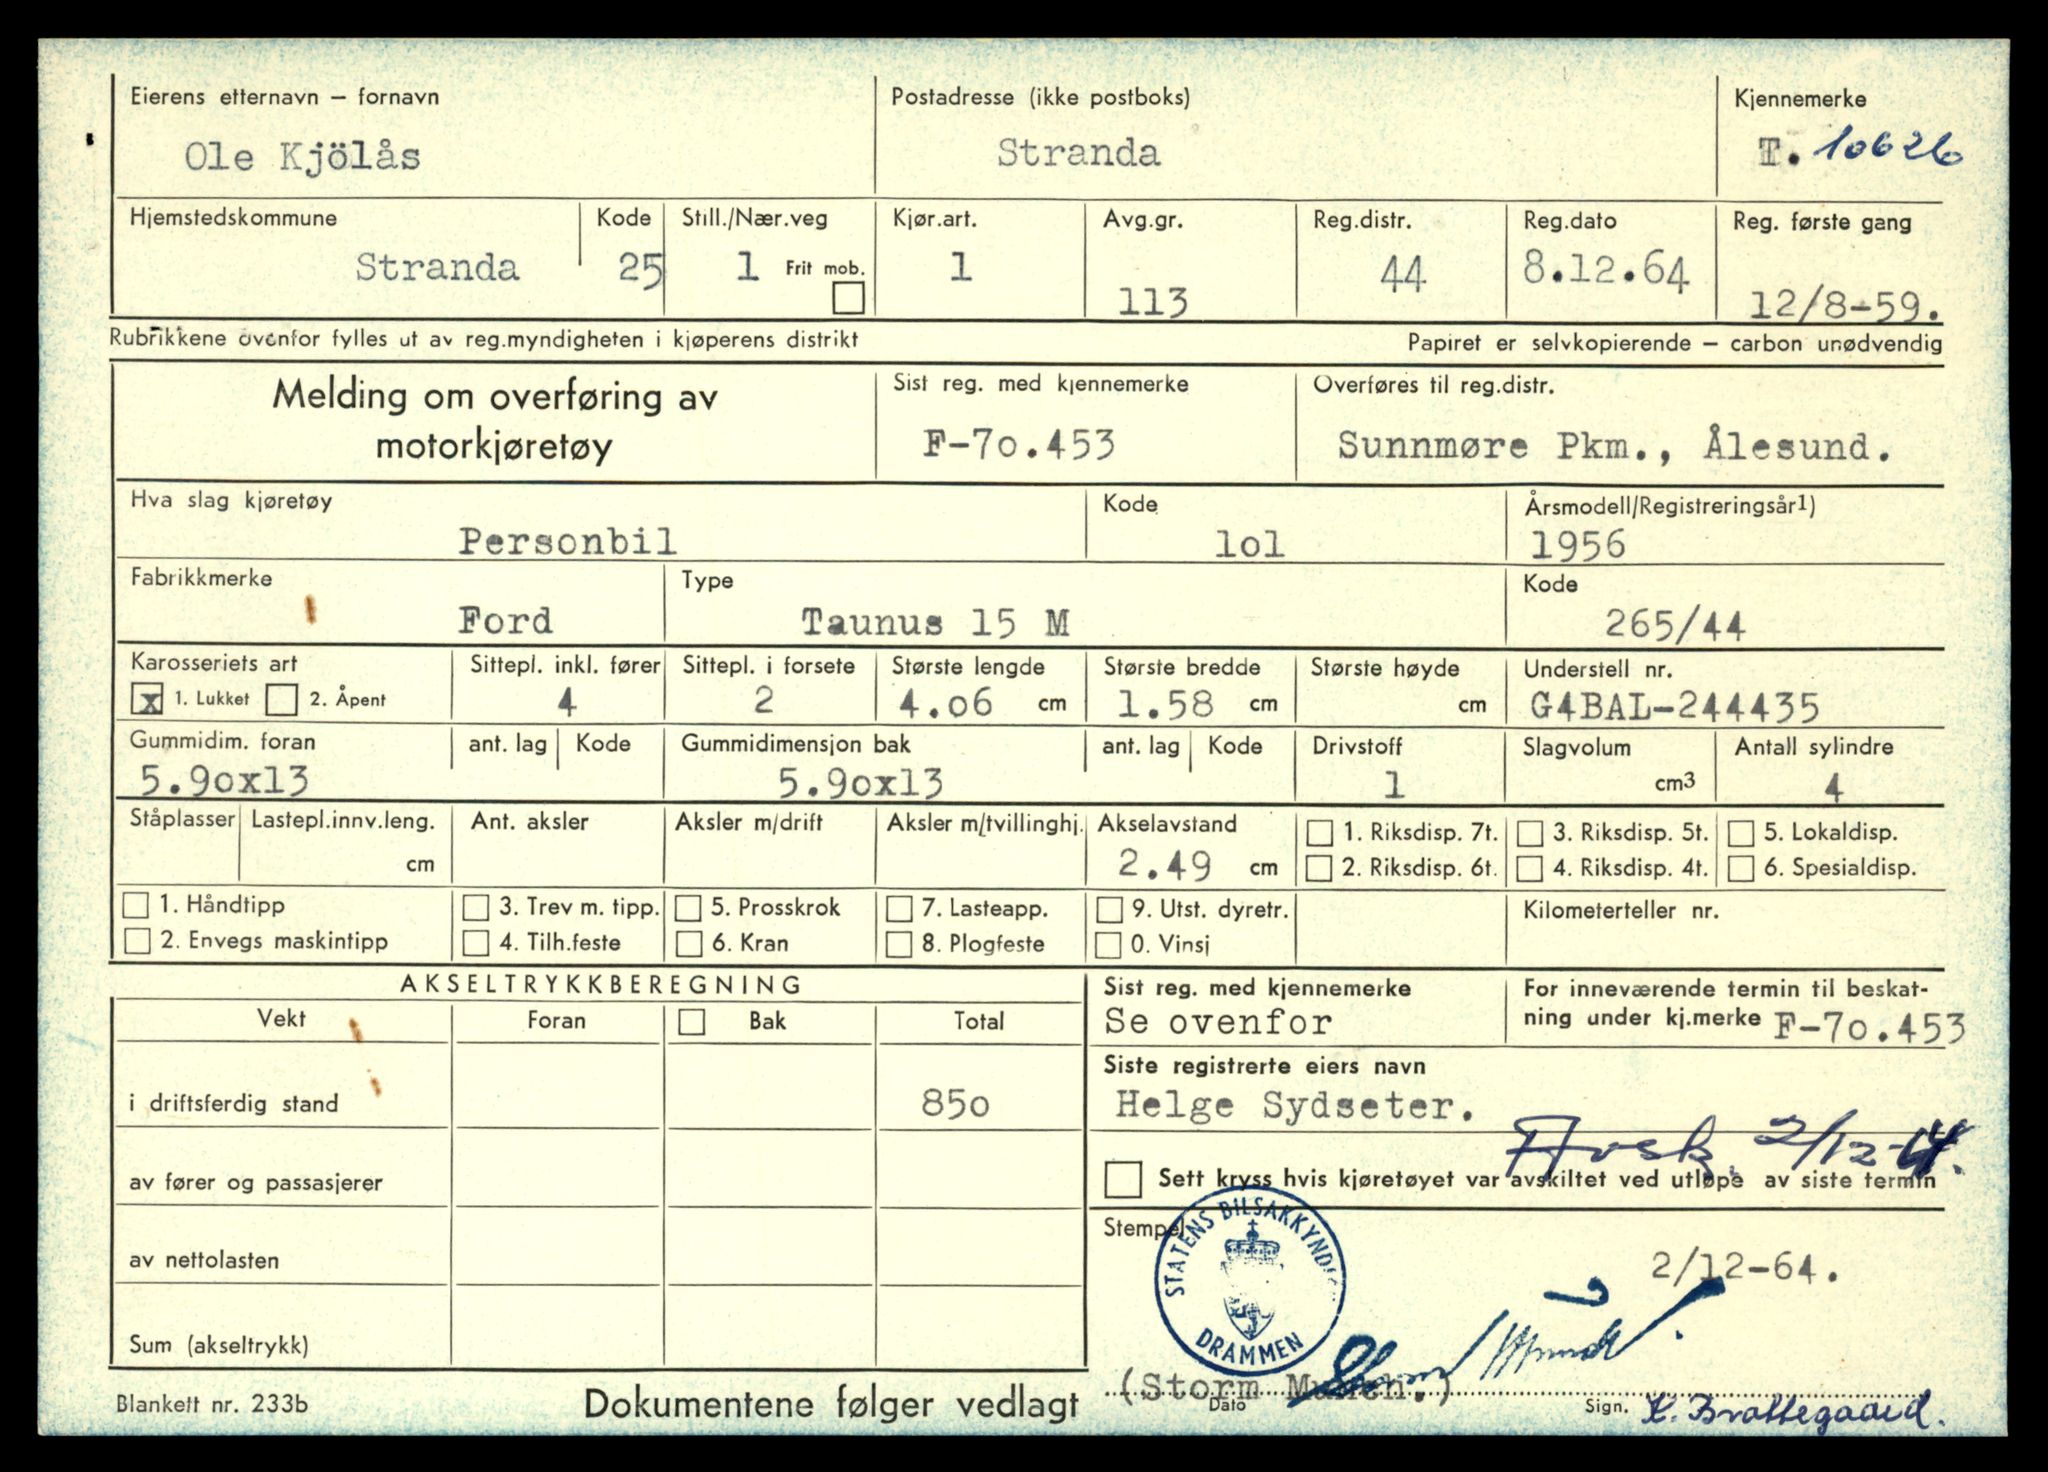 Eierens etternavn – fornavn
Ole Kjölås
Postadresse (ikke postboks)
Stranda
Kjennemerke
T. 10626
Hjemstedskommune
Stranda
Kode
25
Still./Nær.veg
1 Frit mob.
Kjør.art.
1
Avg.gr.
113
Reg.distr.
44
Reg.dato
8.12.64
Reg. første gang
12/8-59.
Rubrikkene ovenfor fylles ut av reg.myndigheten i kjøperens distrikt
Papiret er selvkopierende – carbon unødvendig
Melding om overføring av
motorkjøretøy
Sist reg. med kjennemerke
F-7o.453
Overføres til reg.distr.
Sunnmøre Pkm., Ålesund.
Hva slag kjøretøy
Personbil
Kode
lol
Årsmodell/Registreringsår1)
1956
Fabrikkmerke
Ford
Type
Taunus 15 M
Kode
265/44
Karosseriets art
x 1. Lukket 2. Åpent
Sittepl. inkl. fører
4
Sittepl. i forsete
2
Største lengde
4.o6 cm
Største bredde
1.58 cm
Største høyde
cm
Understell nr.
G4BAL-244435
Gummidim. foran
5.9ox13
ant. lag Kode
Gummidimensjon bak
5.9ox13
ant. lag Kode
Drivstoff
1
Slagvolum
cm3
Antall sylindre
4
Ståplasser
Lastepl.innv.leng.
cm
Ant. aksler
Aksler m/drift
Aksler m/tvillinghj.
Akselavstand
2.49 cm
1. Riksdisp. 7t.
2. Riksdisp. 6t.
3. Riksdisp. 5t.
4. Riksdisp. 4t.
5. Lokaldisp.
6. Spesialdisp.
1. Håndtipp
2. Envegs maskintipp
3. Trev m. tipp.
4. Tilh.feste
5. Prosskrok
6. Kran
7. Lasteapp.
8. Plogfeste
9. Utst. dyretr.
0. Vinsj
Kilometerteller nr.
AKSELTRYKKBEREGNING
Vekt Foran Bak Total
i driftsferdig stand 85o
av fører og passasjerer
av nettolasten
Sum (akseltrykk)
Sist reg. med kjennemerke
Se ovenfor
For inneværende termin til beskat-
ning under kj.merke F-7o.453
Siste registrerte eiers navn
Helge Sydseter.
Avsk. 2/12-64.
Sett kryss hvis kjøretøyet var avskiltet ved utløpe av siste termin
Stempel
STATENS BILSAKKYNDI
DRAMMEN
2/12-64.
(Storm Munch.)
Dato
Sign. K. Brattegaard.
Blankett nr. 233b
Dokumentene følger vedlagt